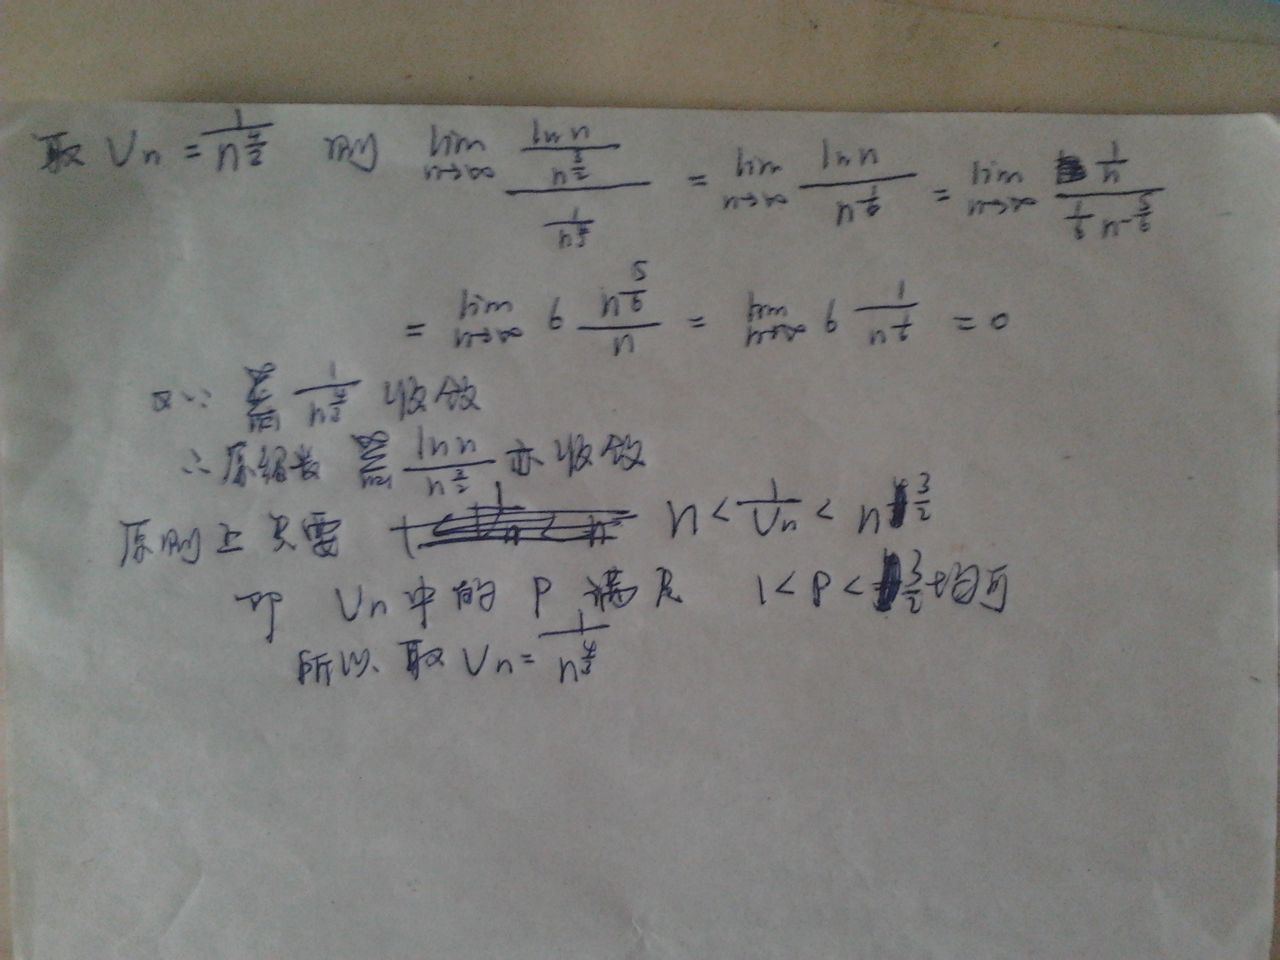 取 Vn = 1/n^(4/3) 则 lim n→∞ (ln n / n^(3/2)) / (1 / n^(4/3)) = lim n→∞ ln n / n^(1/6) = lim n→∞ (1/n) / (1/6 n^(-5/6))
= lim n→∞ 6 n^(5/6) / n = lim n→∞ 6 1/n^(1/6) = 0
又∵ ∑ n=1 ∞ 1/n^(4/3) 收敛
∴原级数 ∑ n=1 ∞ ln n / n^(3/2) 亦收敛
原则上只需 n < 1/Vn < n^(3/2)
即 Vn中的 P 满足 1 < P < 3/2 均可
所以取 Vn = 1/n^(4/3)